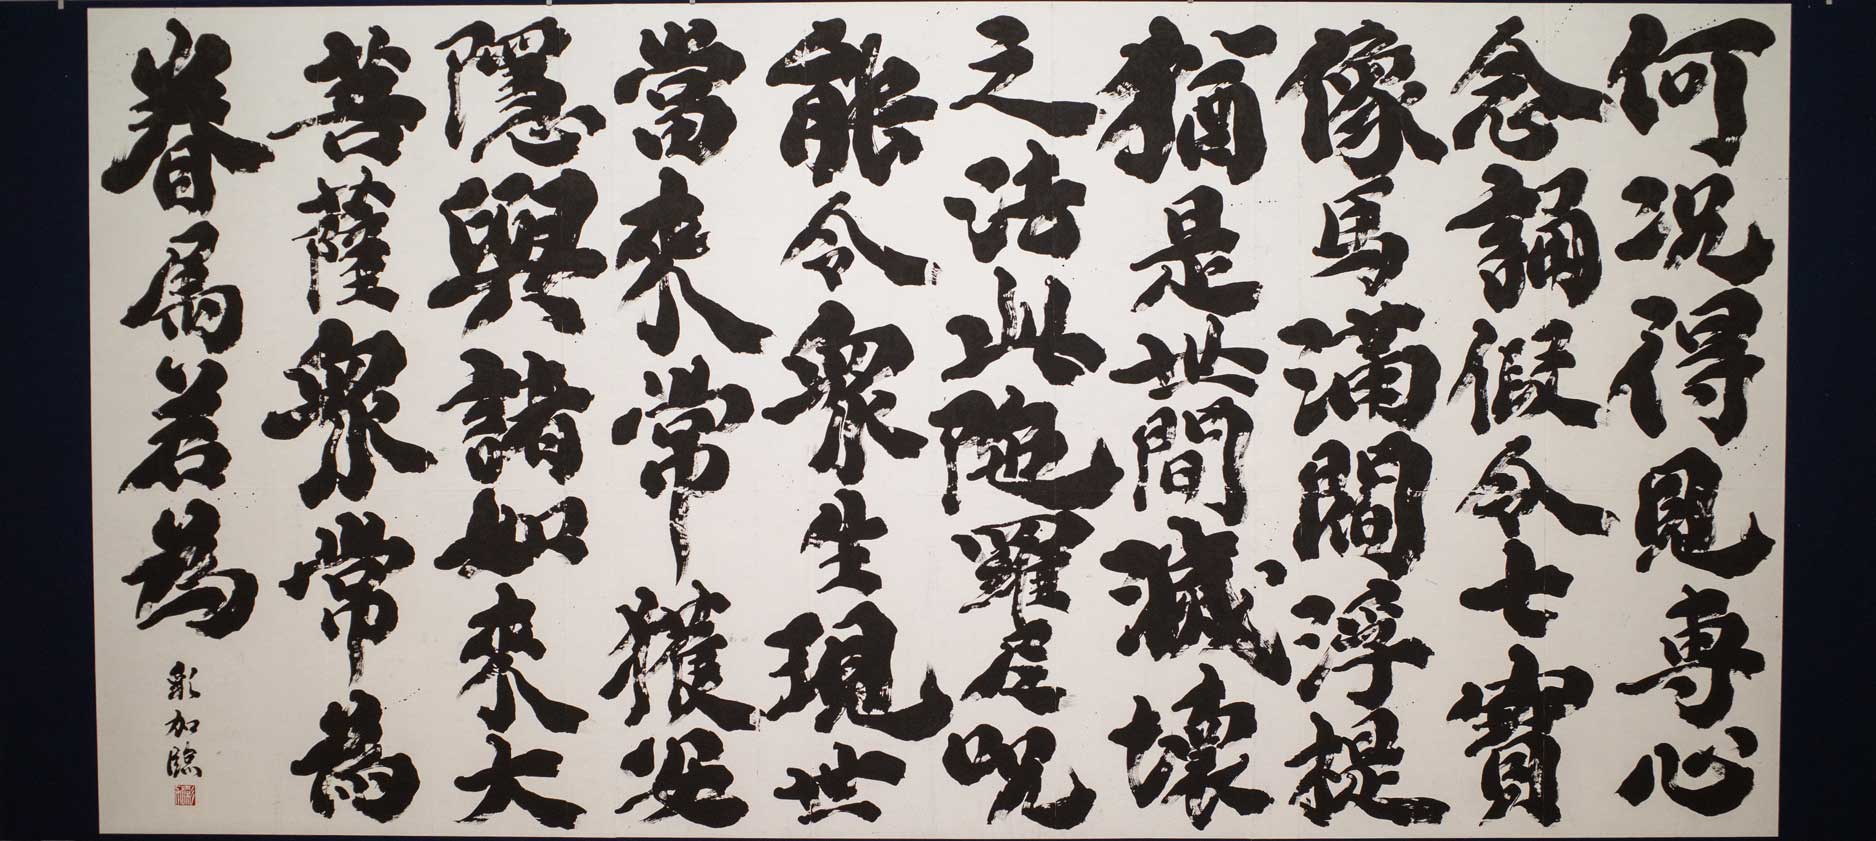 何况得見専心
念誦假令七寶
像馬滿閻浮提
猶是世間滅壞
之法此陁羅尼呪
能令衆生現世
當來常獲安
隱與諸如來大
菩薩衆常為
眷属若為
彩加臨